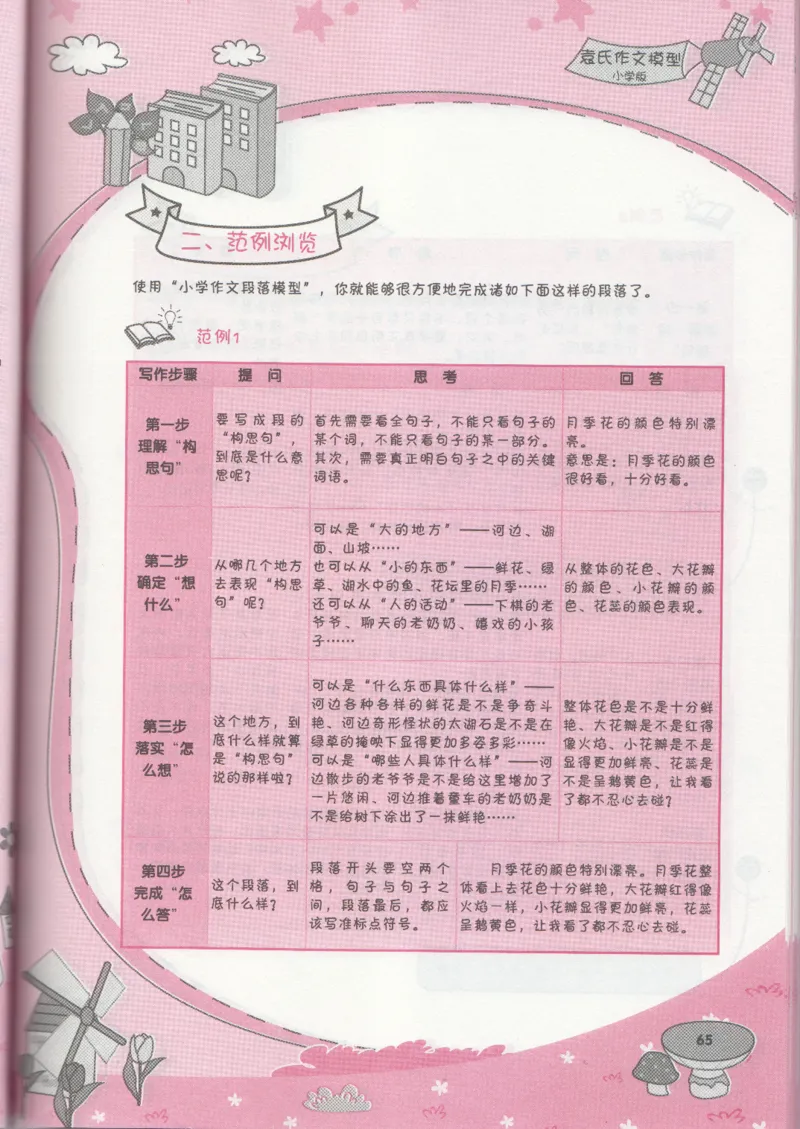 袁氏作文模型
小学版
二、范例浏览
使用“小学作文段落模型”，你就能够很方便地完成诸如下面这样的段落了。
范例1
写作步骤
提 问
思 考
回 答
第一步
理解“构
思句”
要写成段的
“构思句”，
到底是什么意
思呢?
首先需要看全句子，不能只看句子的
某个词，不能只看句子的某一部分。
其次，需要真正明白句子之中的关键
词语。
月季花的颜色特别漂
亮。
意思是：月季花的颜色
很好看，十分好看。
第二步
确定“想
什么”
从哪几个地方
去表现“构思
句”呢?
可以是“大的地方”——河边、湖
面、山坡……
也可以从“小的东西”——鲜花、绿
草、湖水中的鱼、花坛里的月季……
还可以从“人的活动”——下棋的老
爷爷、聊天的老奶奶、嬉戏的小孩
子……
从整体的花色、大花瓣
的颜色、小花瓣的颜
色、花蕊的颜色表现。
第三步
落实“怎
么想”
这个地方，到
底什么样就算
是“构思句”
说的那样啦?
可以是“什么东西具体什么样”——
河边各种各样的鲜花是不是争奇斗
艳、河边奇形怪状的太湖石是不是在
绿草的掩映下显得更加多姿多彩……
可以是“哪些人具体什么样”——河
边散步的老爷爷是不是给这里增加了
一片悠闲、河边推着童车的老奶奶是
不是给树下涂出了一抹鲜艳……
整体花色是不是十分鲜
艳、大花瓣是不是红得
像火焰、小花瓣是不是
显得更加鲜亮、花蕊是
不是呈鹅黄色，让我看
了都不忍心去碰?
第四步
完成“怎
么答”
这个段落，到
底什么样?
段落开头要空两个
格，句子与句子之
间，段落最后，都应
该写准标点符号。
月季花的颜色特别漂亮。月季花整
体看上去花色十分鲜艳，大花瓣红得像
火焰一样，小花瓣显得更加鲜亮，花蕊
呈鹅黄色，让我看了都不忍心去碰。
65